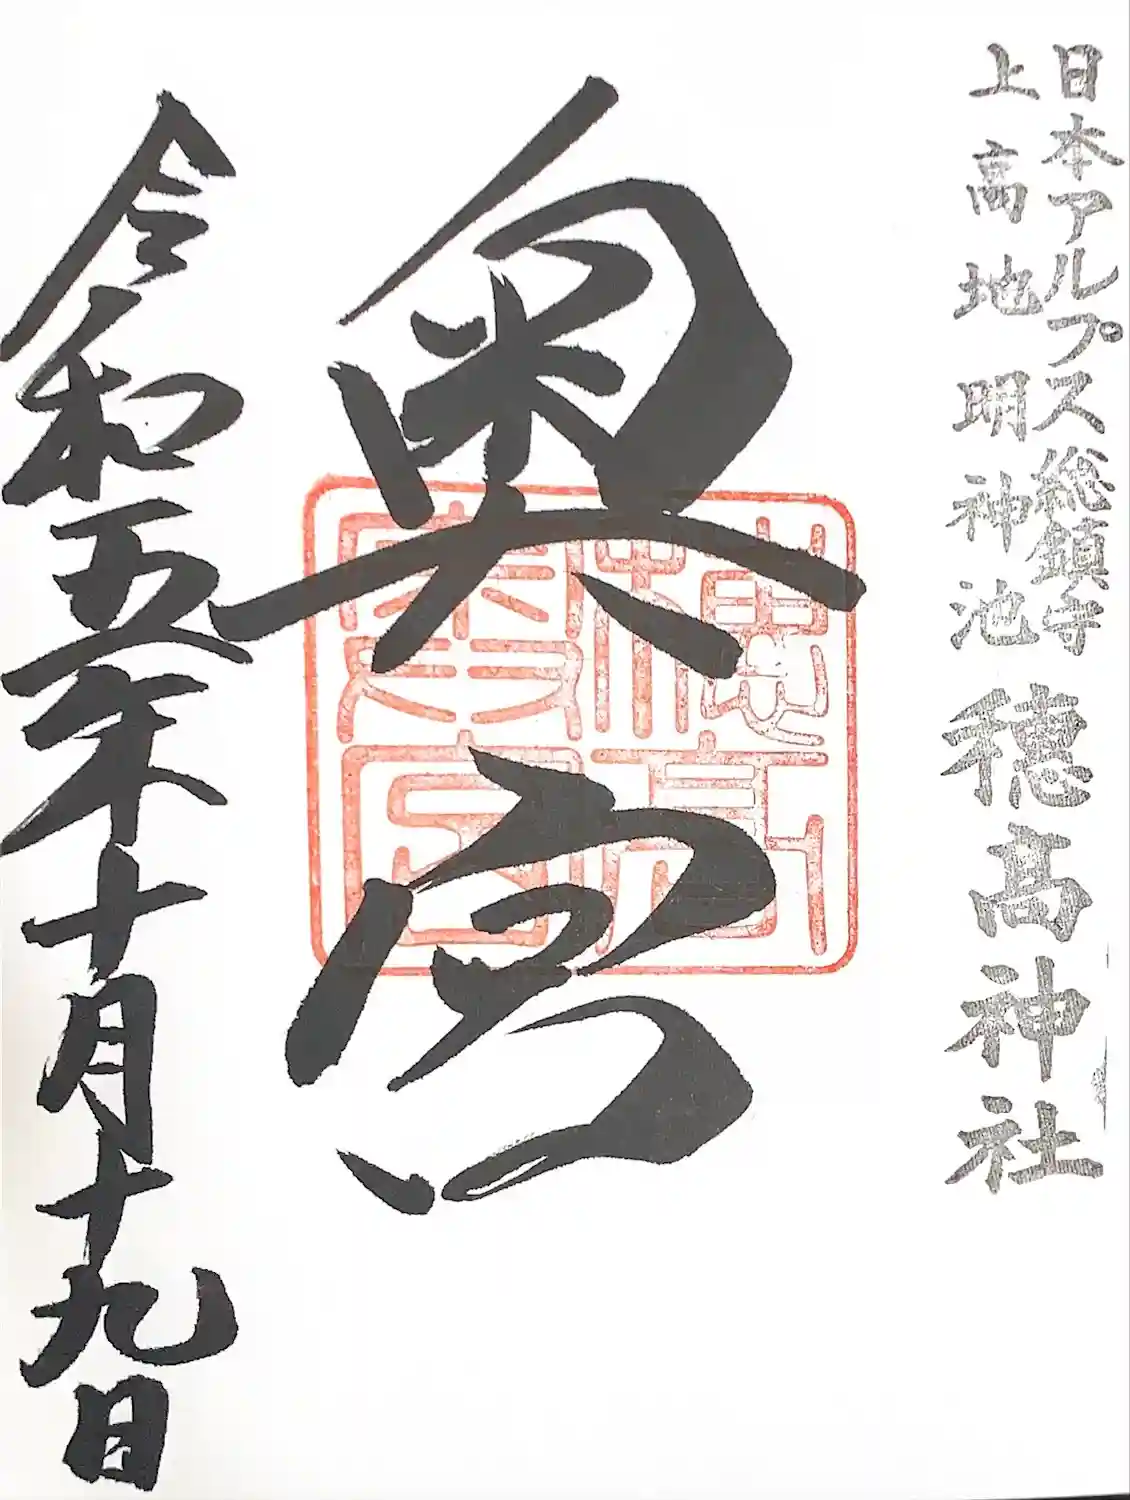 日本アルプス総鎮守
上高地明神池
穂髙神社
奥宮
令和五年十月十九日